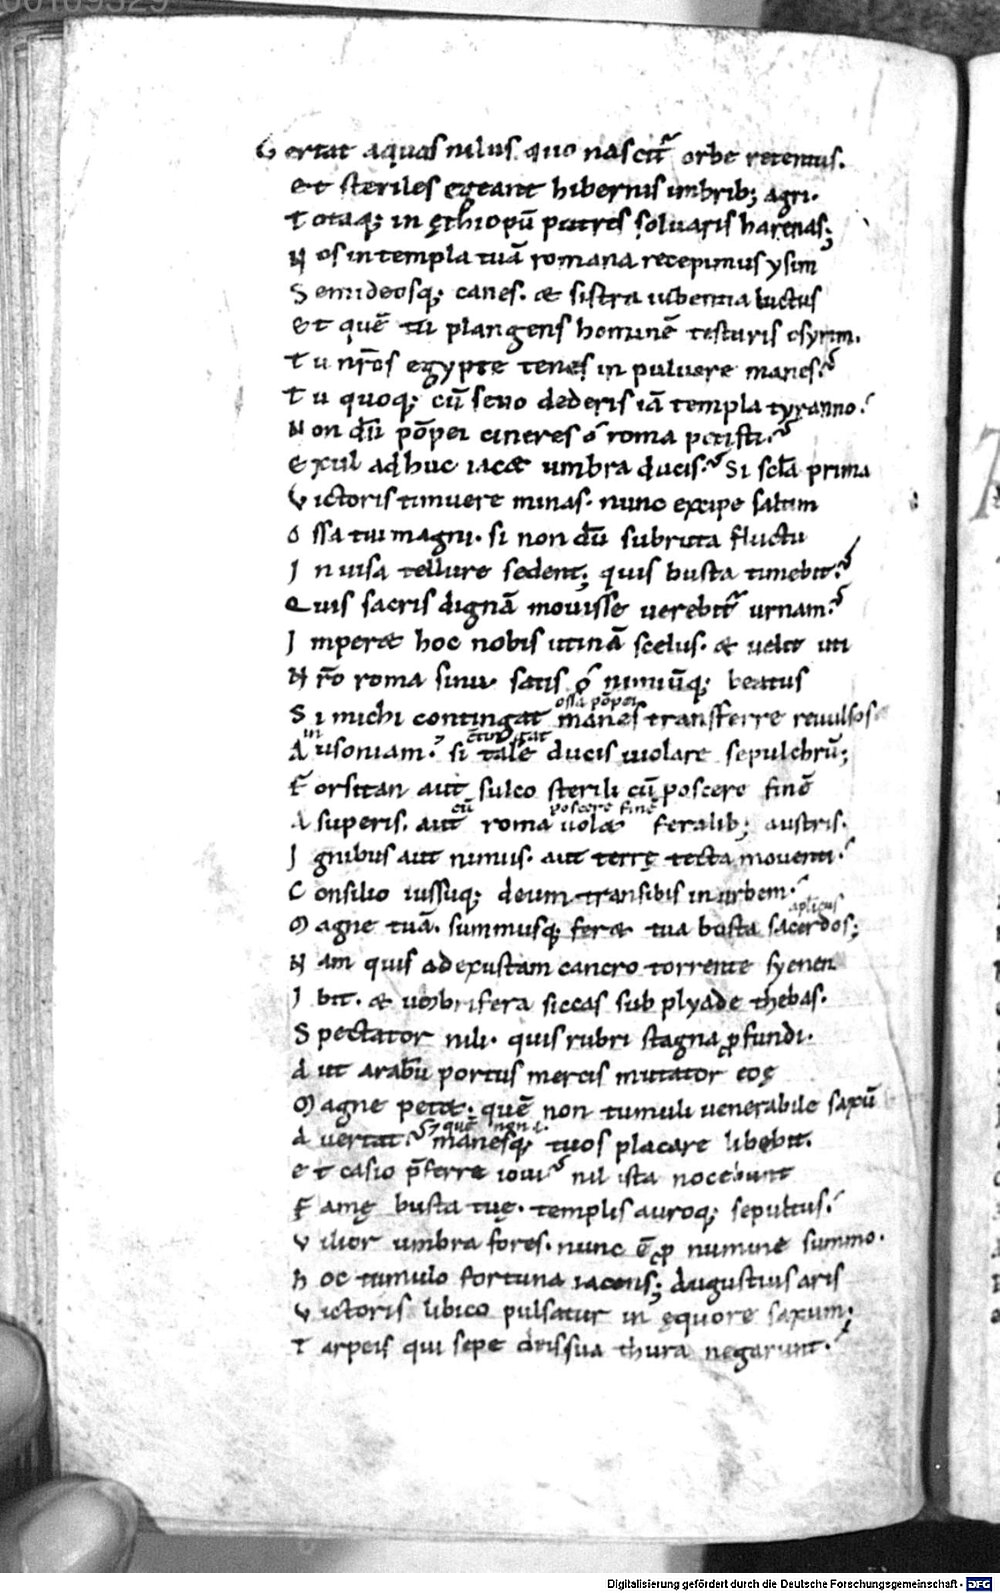 Vertat aquas nilus quo nascit᷑ orbe retentus.
Et steriles egeant hibernis imbrib; agri.
Totaq; in ęthiopū putres soluaris harenas;
Nos in templa tuā romana recepimus ysim
Semideosq; canes. & sistra iubentia luctus
Et quē tu plangens hominē testaris osyrim.
Tu nr̄os egypte tenes in puluere manes.
Tu quoq; cū seuo dederis iā templa tyranno.
Non dū pōpei cineres o roma petisti.
Exul adhuc iac& umbra ducis. Si scl̄a prima
Victoris timuere minas. nunc excipe saltim
Ossa tui magni. si non dū subruta fluctu
Inuisa tellure sedent; quis busta timebit.
Quis sacris dignā mouisse uerebit᷑ urnam.
Imper& hoc nobis utinā scelus. & uelit uti
Nr̄o roma sinu. satis o nimiūq; beatus
ossa pōpei
Si michi contingat manes transferre reuulsos
in
Ausoniam. si tale ducis uiolare sepulchrū;
Forsitan aut sulco sterili cū poscere finē
cū poscere finē
A superis. aut roma uol& feralib; austris.
Ignibus aut nimiis. aut terrę tecta mouenti.
Consilio iussuq; deum transibis in urbem.
Magne tuā. summusq; fer& tua busta sacerdos;
Nam quis ad exustam cancro torrente syenen
Ibit. & umbrifera siccas sub plyade thebas.
Spectator nili. quis rubri stagna ꝓfundi.
Aut arabū portus mercis mutator eoę
Magne pet&. quē non tumuli uenerabile saxū
Auertat manesq; tuos placare libebit.
Et casio p̄ferre ioui nil ista nocebunt
Famę busta tuę. templis auroq; sepultus.
Vilior umbra fores. nunc ē ꝓ numine summo.
Hoc tumulo fortuna iacens; augustius aris
Victoris libico pulsatur in ęquore saxum;
Tarpeis qui sepe deis sua thura negarunt.
Digitalisierung gefördert durch die Deutsche Forschungsgemeinschaft - DFG